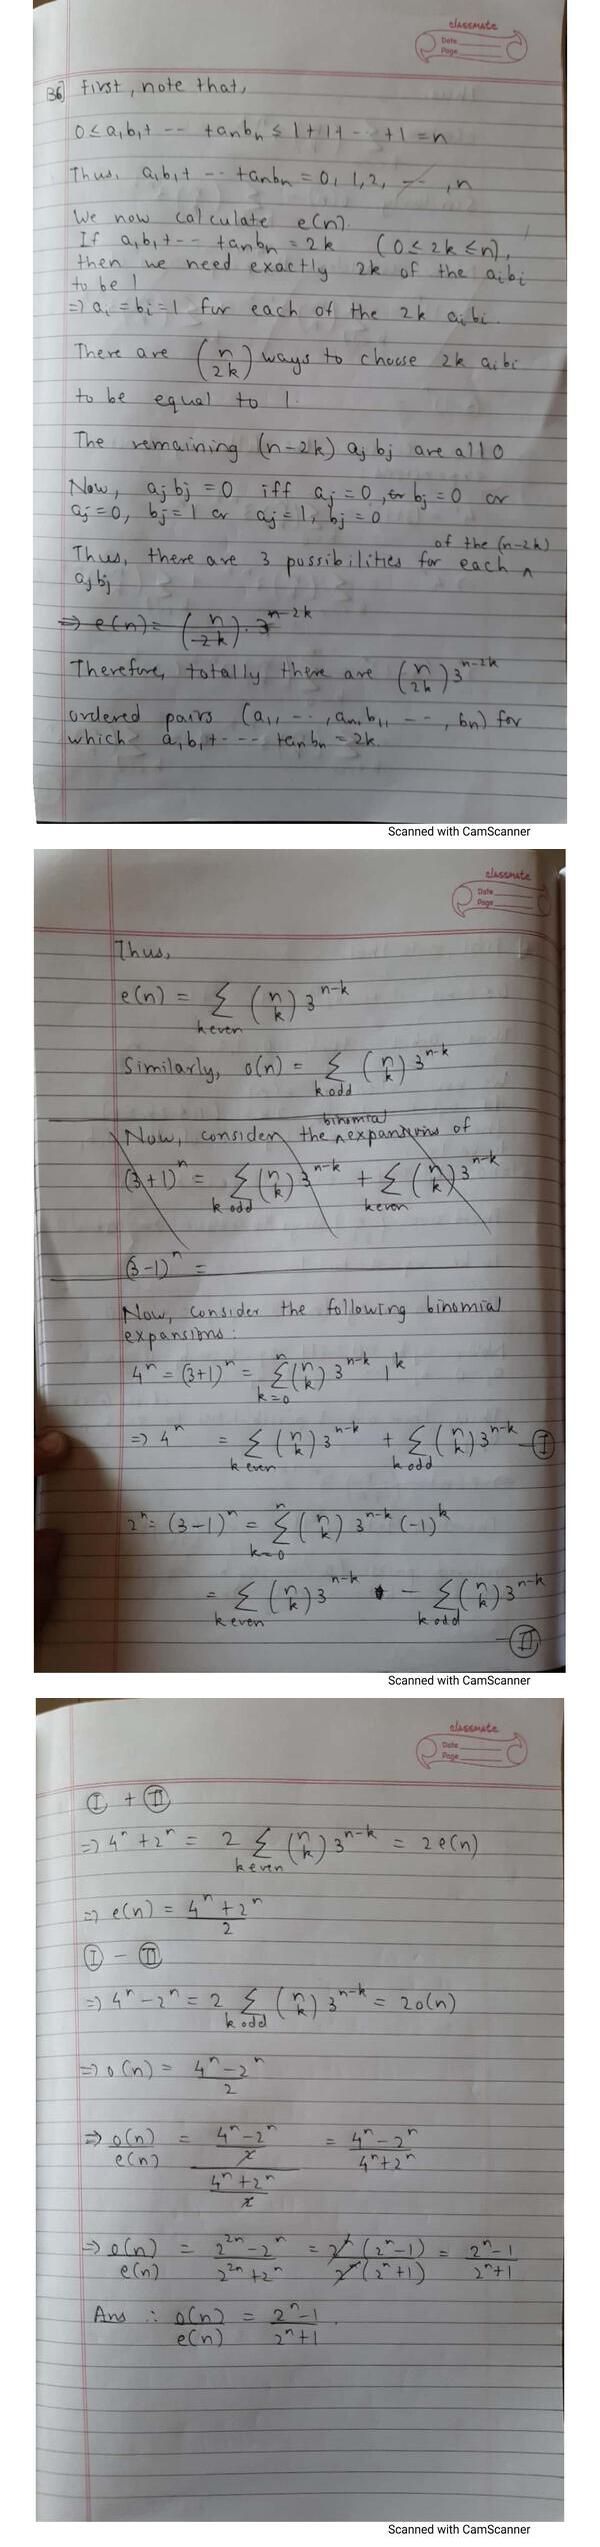 classmate
Date
Page
B6] First, note that,
0 ≤ a₁b₁+ -- +aₙbₙ ≤ 1+1+ -- +1 = n
Thus, a₁b₁+ -- +aₙbₙ = 0, 1, 2, --- , n
We now calculate e(n).
If a₁b₁+ -- +aₙbₙ = 2k (0 ≤ 2k ≤ n),
then we need exactly 2k of the aᵢbᵢ
to be 1
=) aᵢ = bᵢ = 1 for each of the 2k aᵢbᵢ.
There are (n 2k) ways to choose 2k aᵢbᵢ
to be equal to 1.
The remaining (n-2k) aⱼbⱼ are all 0
Now, aⱼbⱼ = 0 iff aⱼ = 0, bⱼ = 0 or
aⱼ=0, bⱼ=1 or aⱼ=1, bⱼ=0
of the (n-2k)
Thus, there are 3 possibilities for each ^
aⱼbⱼ
=> e(n) = (n 2k) · 3^(n-2k)
Therefore, totally there are (n 2k) 3^(n-2k)
ordered pairs (a₁, --- , aₙ, b₁, --- , bₙ) for
which a₁b₁+ --- +aₙbₙ = 2k
Scanned with CamScanner
classmate
Date
Page
Thus,
e(n) = Σ (n k) 3^(n-k)
k even
Similarly, o(n) = Σ (n k) 3^(n-k)
k odd
binomial
Now, consider the ^ expansions of
(3+1)^n = Σ (n k) 3^(n-k) + Σ (n k) 3^(n-k)
k odd k even
(3-1)^n =
Now, consider the following binomial
expansions:
4^n = (3+1)^n = Σ (n k) 3^(n-k) 1^k
n
k=0
=) 4^n = Σ (n k) 3^(n-k) + Σ (n k) 3^(n-k) — I
k even k odd
2^n = (3-1)^n = Σ (n k) 3^(n-k) (-1)^k
n
k=0
= Σ (n k) 3^(n-k) - Σ (n k) 3^(n-k)
k even k odd
— II
Scanned with CamScanner
classmate
Date
Page
I + II
=) 4^n + 2^n = 2 Σ (n k) 3^(n-k) = 2e(n)
k even
=) e(n) = (4^n + 2^n)/2
I - II
=) 4^n - 2^n = 2 Σ (n k) 3^(n-k) = 2o(n)
k odd
=) o(n) = (4^n - 2^n)/2
=) o(n)/e(n) = ((4^n - 2^n)/2)/((4^n + 2^n)/2) = (4^n - 2^n)/(4^n + 2^n)
=) o(n)/e(n) = (2^2n - 2^n)/(2^2n + 2^n) = 2^n(2^n - 1)/2^n(2^n + 1) = (2^n - 1)/(2^n + 1)
Ans : o(n)/e(n) = (2^n - 1)/(2^n + 1).
Scanned with CamScanner